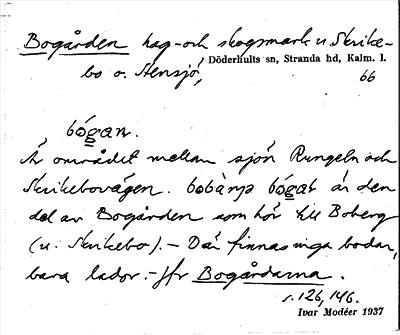 Bogården hag- och skogsmark u. Skrike-
bo o. Stensjö,
Döderhults sn, Stranda hd, Kalm. l.
66
bógan.
Är området mellan sjön Rungeln och
Skrikebovägen. bobàṇa bógat är den
del av Bogården som hör till Boberg
(u. Skrikebo). – Där finnas inga bodar,
bara lador. – Jfr Bogårdarna.
s. 126, 146.
Ivar Modéer 1937